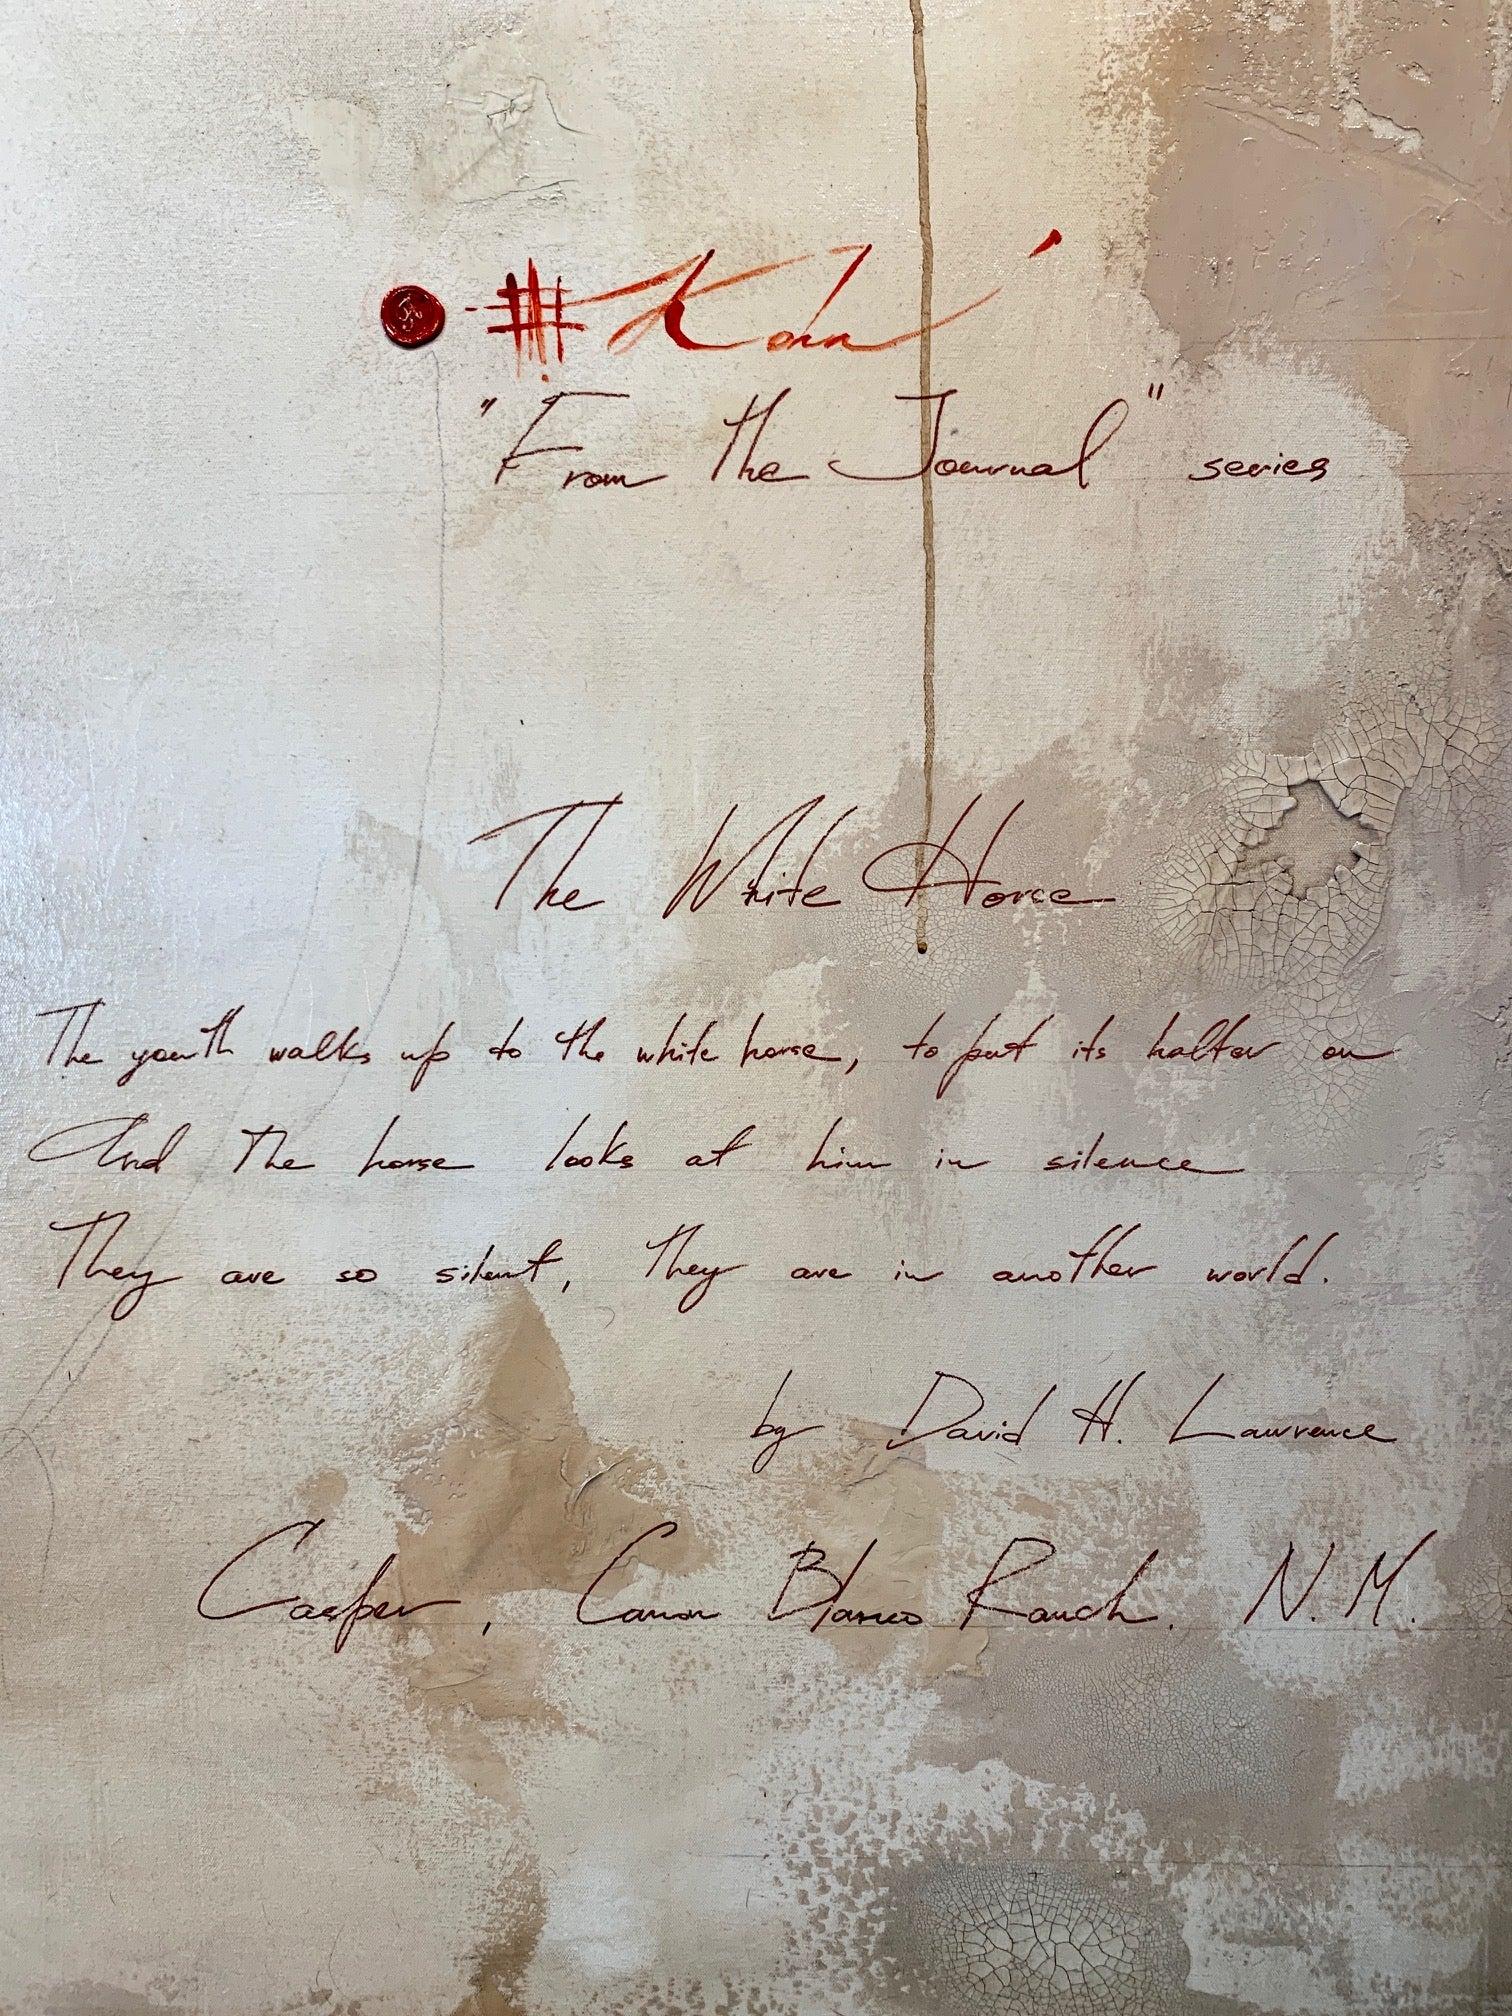 "From the Journal" series
The White Horse
The youth walks up to the white horse, to put its halter on
And the horse looks at him in silence
They are so silent, they are in another world.
by David H. Lawrence
Casper, Canon Blanco Ranch. N.M.